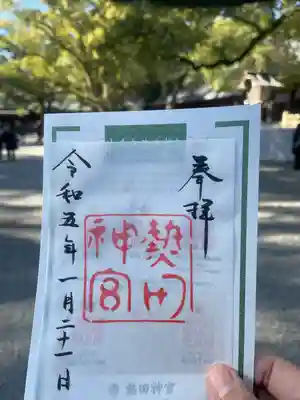 奉拝
熱田
神宮
令和五年一月二十一日
熱田神宮